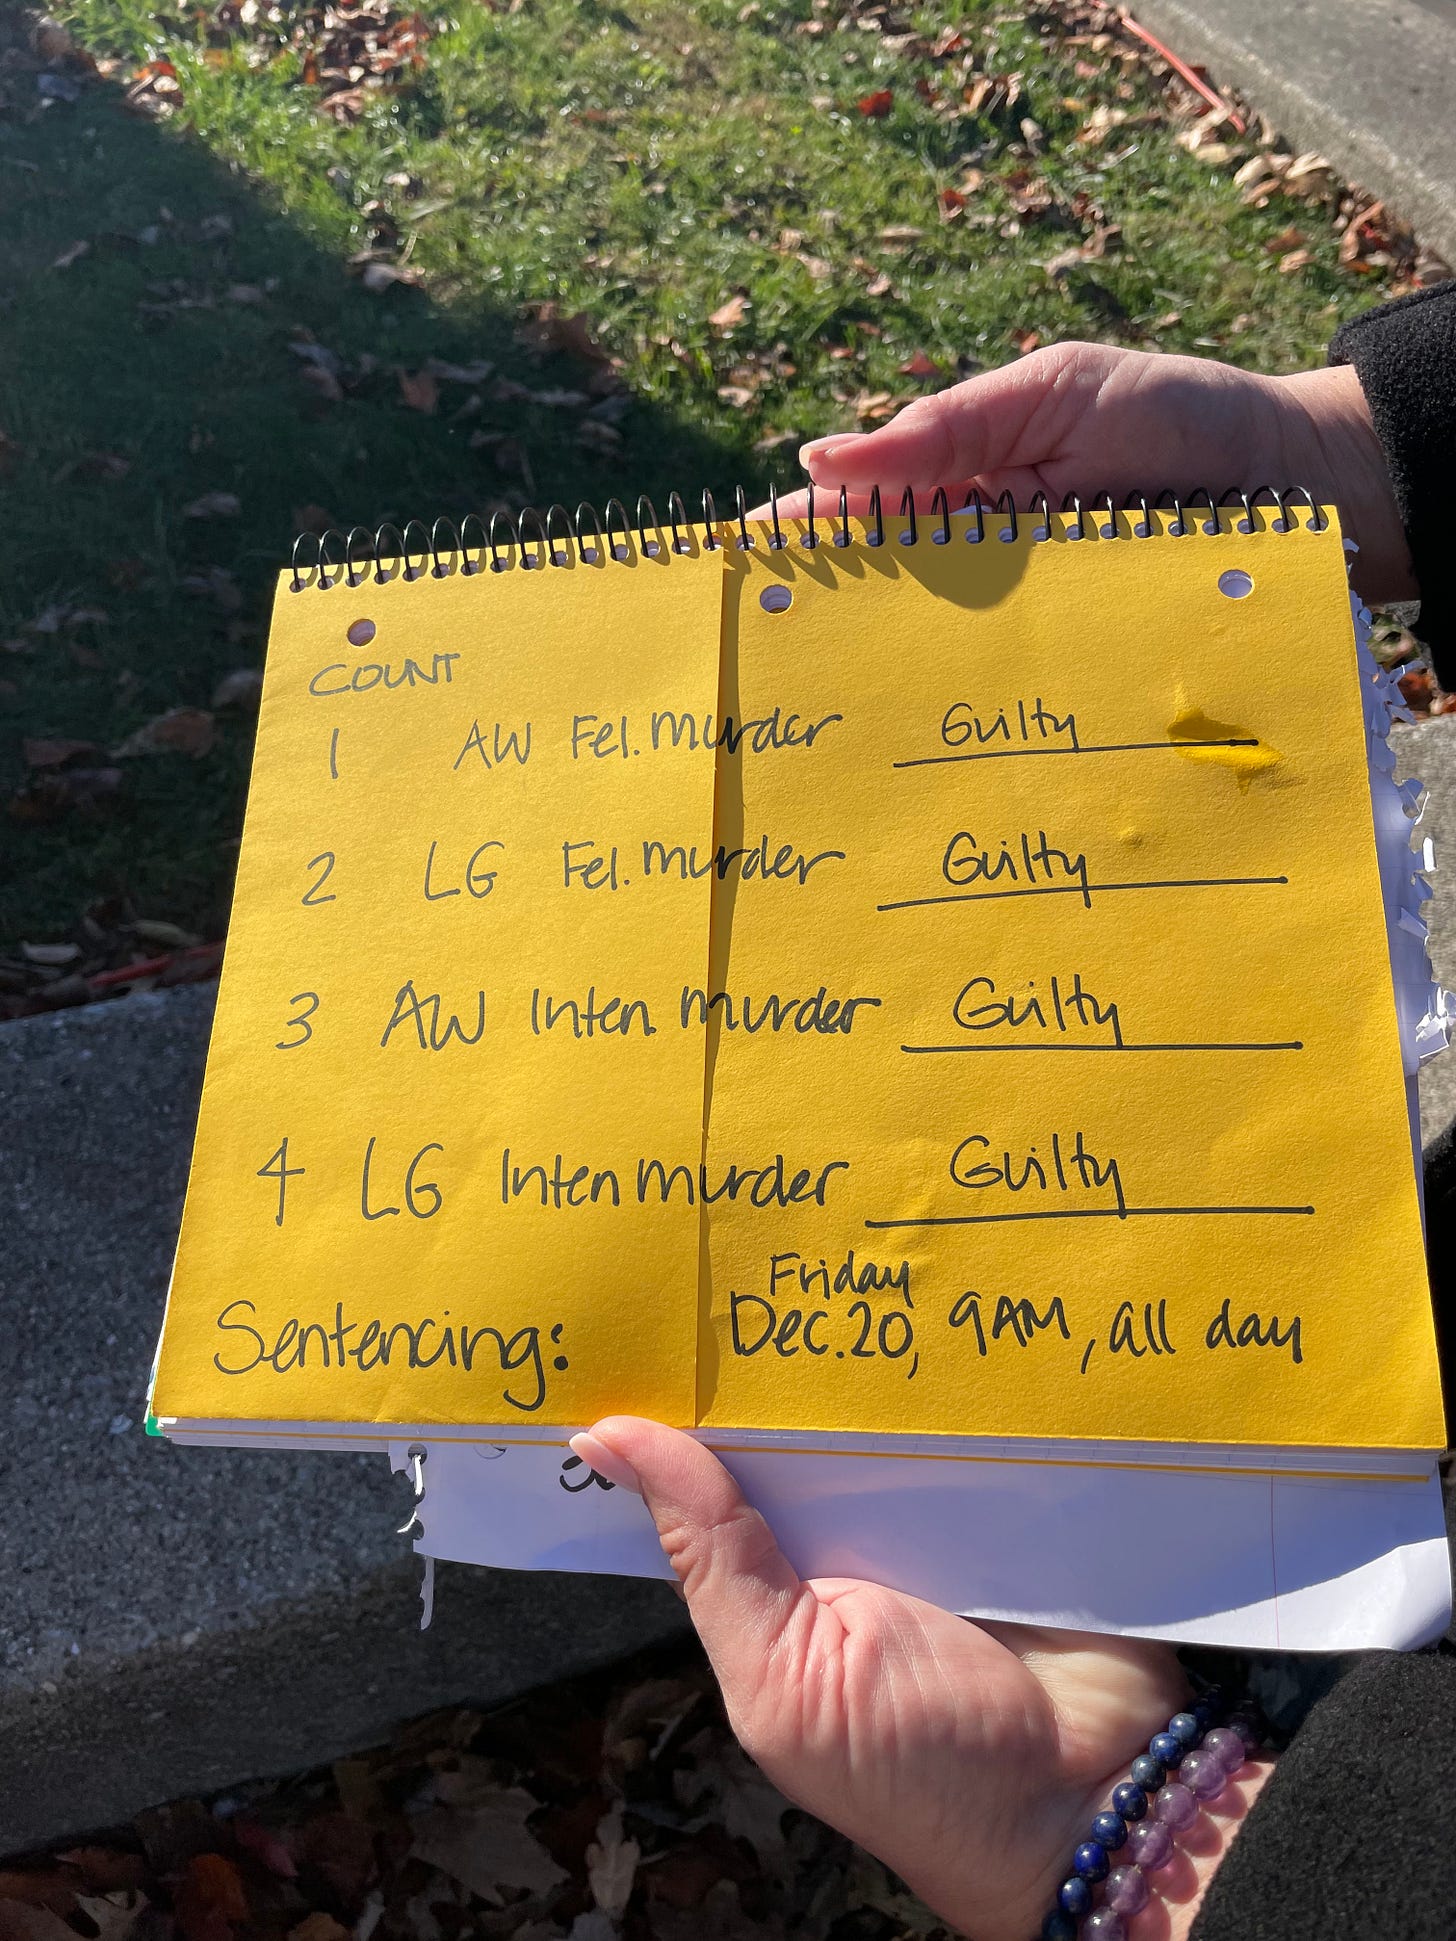 COUNT
1 AW Fel. Murder Guilty
2 LG Fel. Murder Guilty
3 AW Inten. Murder Guilty
4 LG Inten Murder Guilty
Friday
Sentencing: Dec. 20, 9AM, all day